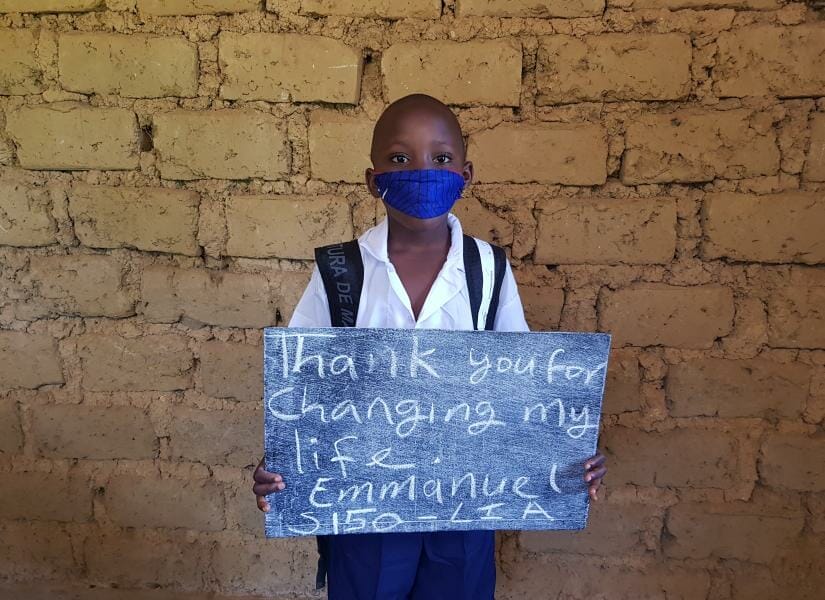 Thank you for
Changing my
life.
Emmanuel
S150-LIA
TURA DE M